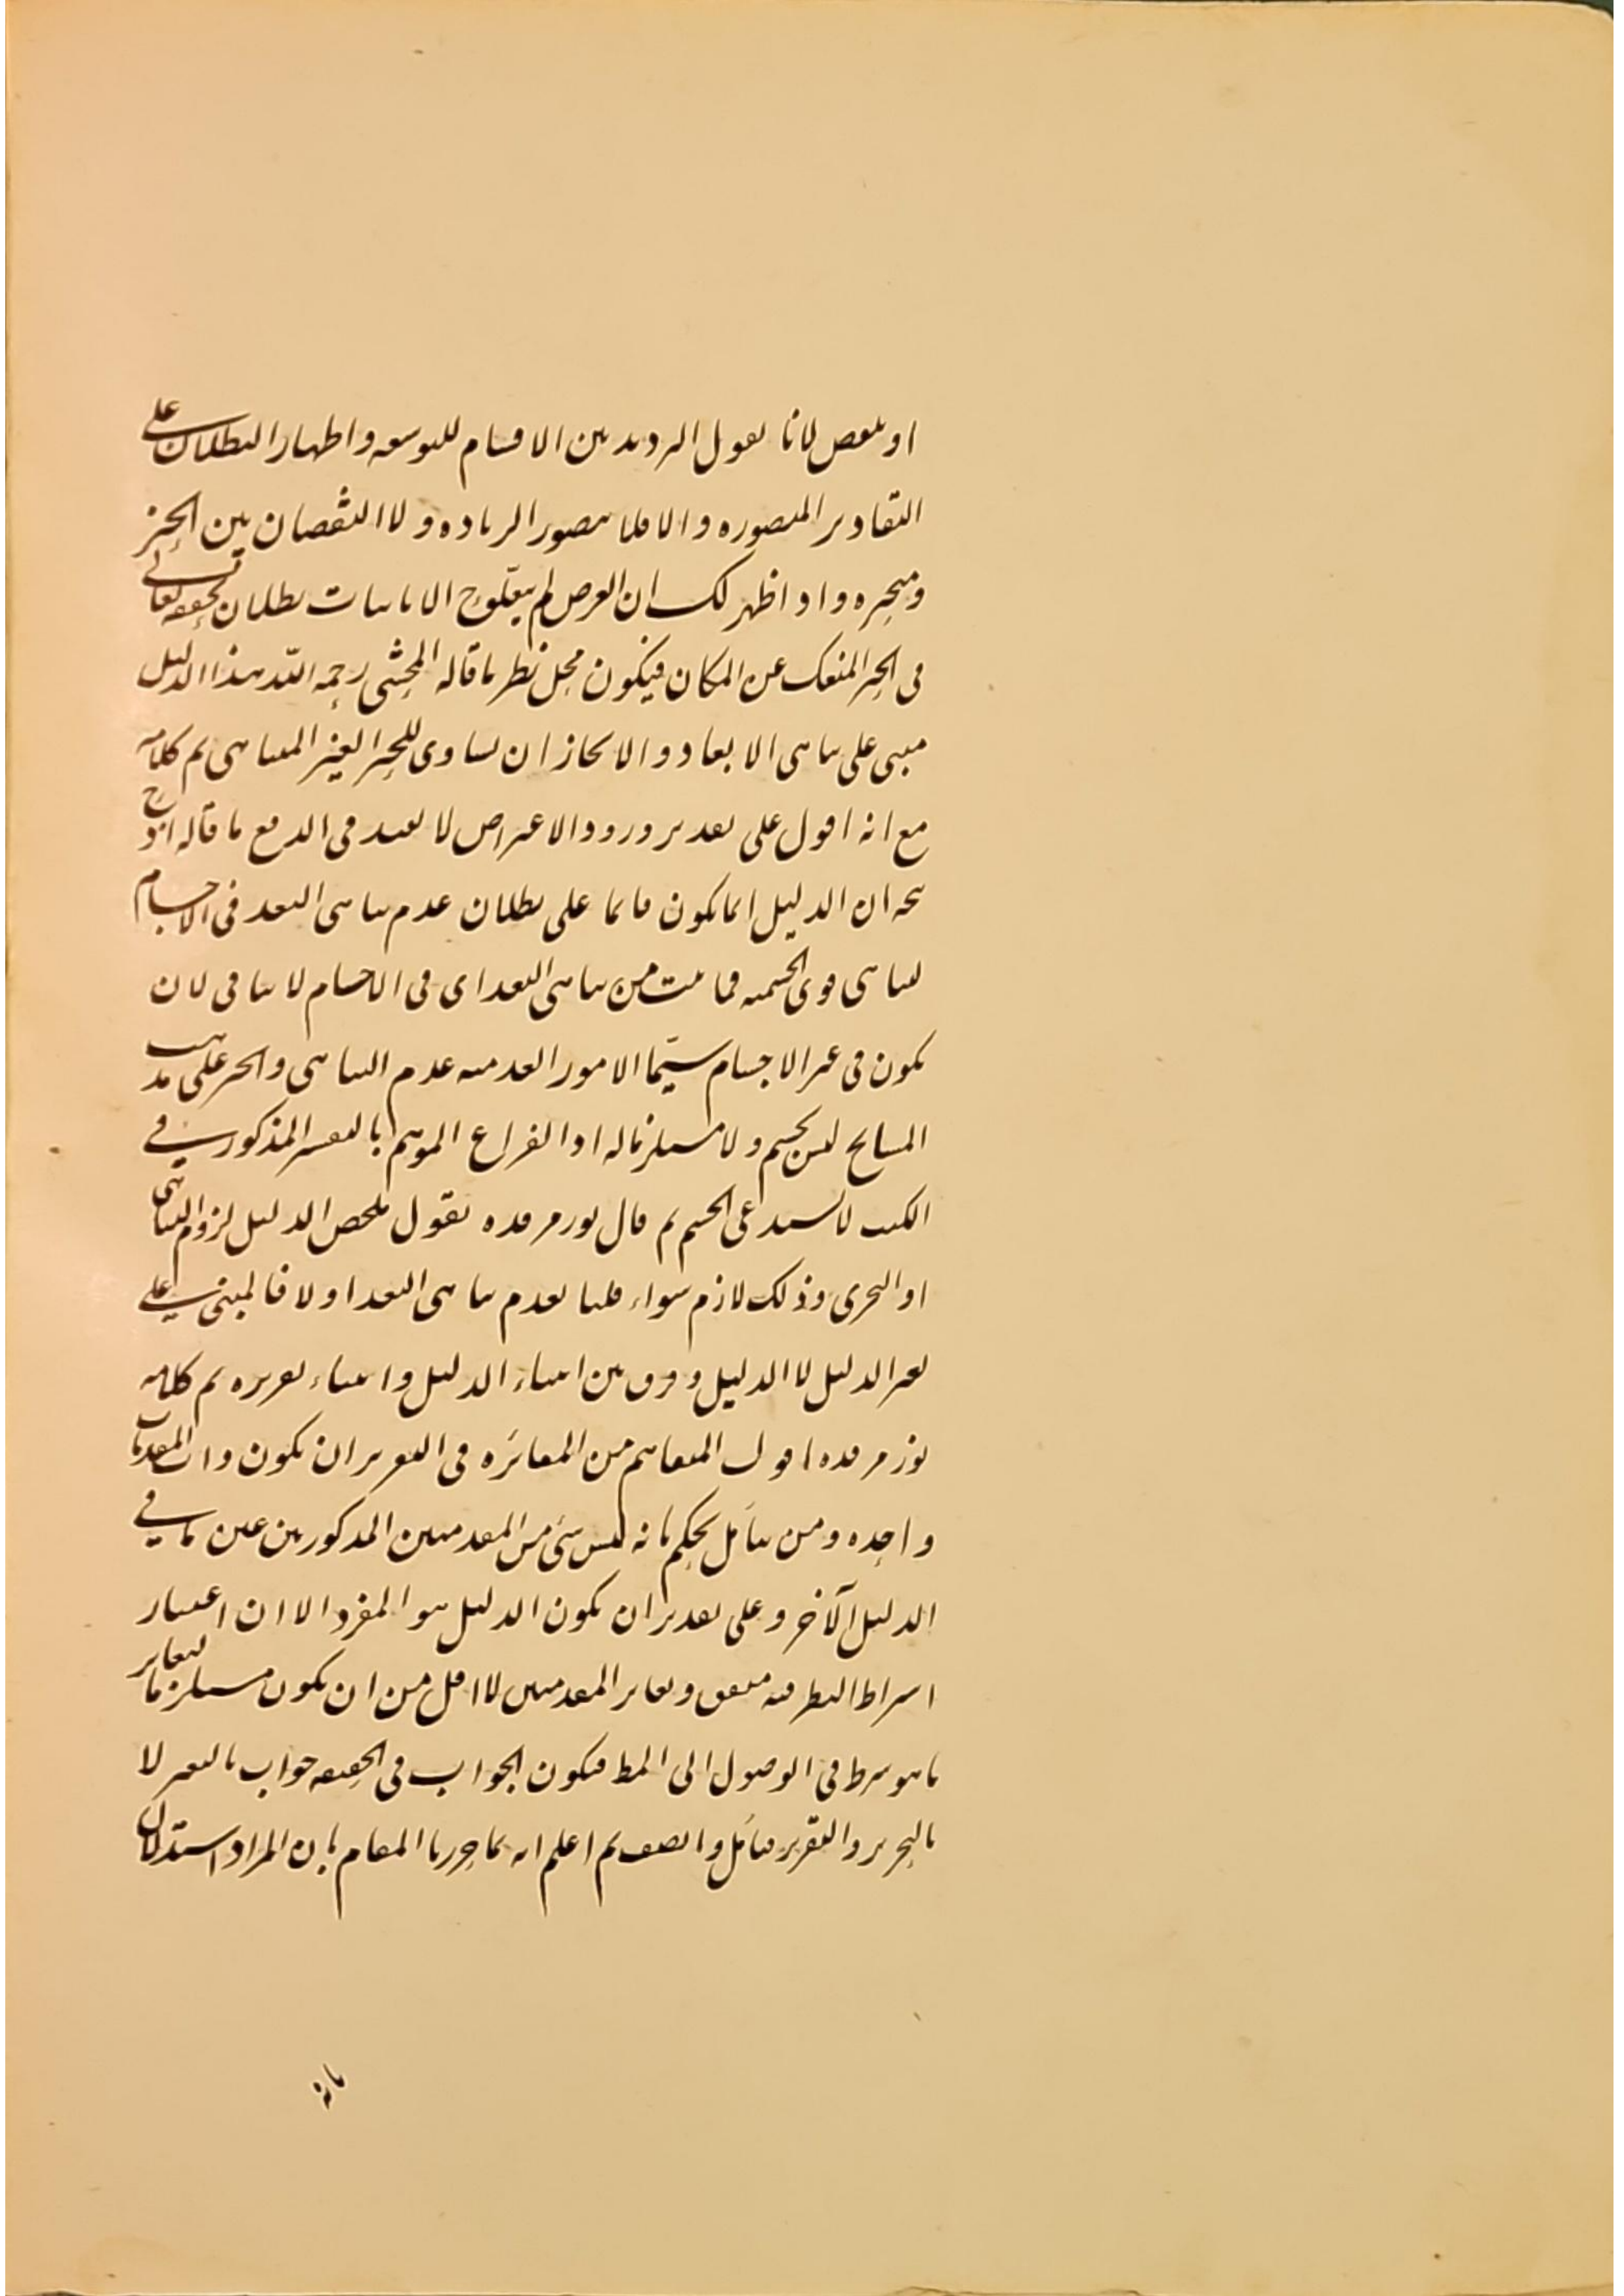 او ينقص لانا نقول الترديد بين الاقسام للتوسعه واظهار البطلان على
التقادير المتصوره والا فلا يتصور الزياده ولا النقصان بين الحيز
ومتحيزه واذا ظهر لك ان الغرض لم يتعلق ح الا باثبات بطلان تحيزه تعالى
فى الحيز المنفك عن المكان فيكون محل نظر ما قاله المحشى رحمه الله هذا الدليل
مبنى على تناهى الابعاد والا لجاز ان يساوى للحيز الغير المتناهى تم كلامه
مع انه اقول على تقدير ورود الاعتراض لا يفيد فى الدفع ما قاله
ان الدليل انما يكون قائما على بطلان عدم تناهى البعد فى الاجسام
لتناهى قوى الجسميه فما ثبت من تناهى البعد اى فى الاجسام لا ينافى لان
يكون فى غير الاجسام سيّما الامور العدميه عدم التناهى والحيز على مذهب
المشايخ ليس بجسم ولا مستلزما له اذ الفراغ الموهم بالتفسير المذكور فى
الكتب لا يستدعى الجسم ثم قال نور مرقده نقول ملخص الدليل لزوم التناهى
او التجزى وذلك لازم سواء قلنا بعدم تناهى البعد او لا فالمبنى على
تقرير الدليل لا الدليل وفرق بين ابتناء الدليل وابتناء تقريره تم كلامه
نور مرقده اقول المتفاهم من المغائره فى التقرير ان يكون ذات المقدمات
واحده ومن تأمل يحكم بانه ليس شئ من المقدمتين المذكورتين عين ما فى
الدليل الآخر وعلى تقدير ان يكون الدليل هو المفرد الا ان اعتبار
اشتراط النظر فيه متفق وتغاير المقدمتين لا اقل من ان يكون مستلزما لتغاير
ما هو شرط فى الوصول الى المط فيكون الجواب فى الحقيقه جواب بالتغيير لا
بالتحرير والتقرير فتأمل وانصف ثم اعلم انه بما حررنا المقام بان المراد استدلال
بانه